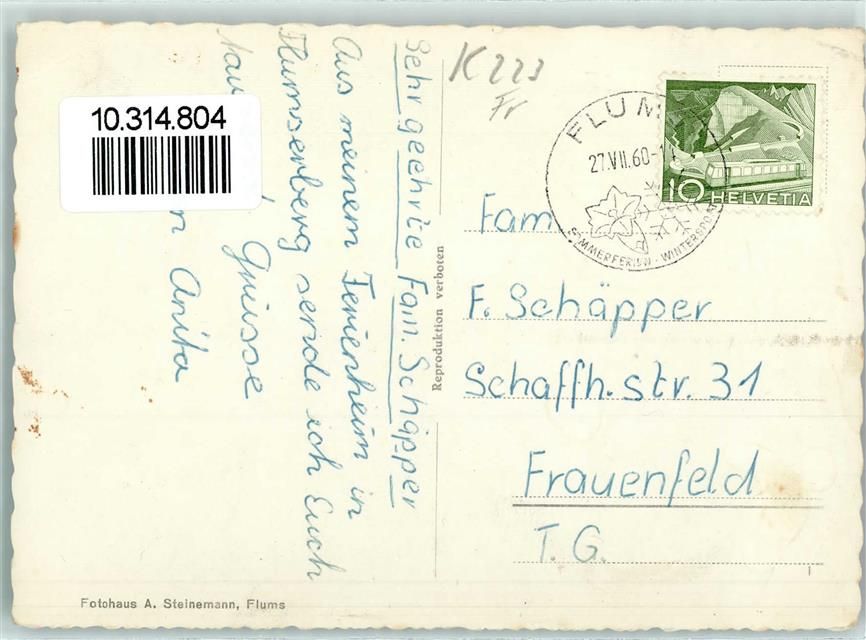 10.314.804
Sehr geehrte Fam. Schäpper
Aus meinem Ferienheim in
Flumserberg sende ich Euch
Grüsse
Anita
Reproduktion verboten
K 223
Fr
FLUMS
27.VII.60-1
SOMMERFERIEN · WINTERSPORT
10 HELVETIA
Fam
F. Schäpper
Schaffh.str. 31
Frauenfeld
T. G.
Fotohaus A. Steinemann, Flums